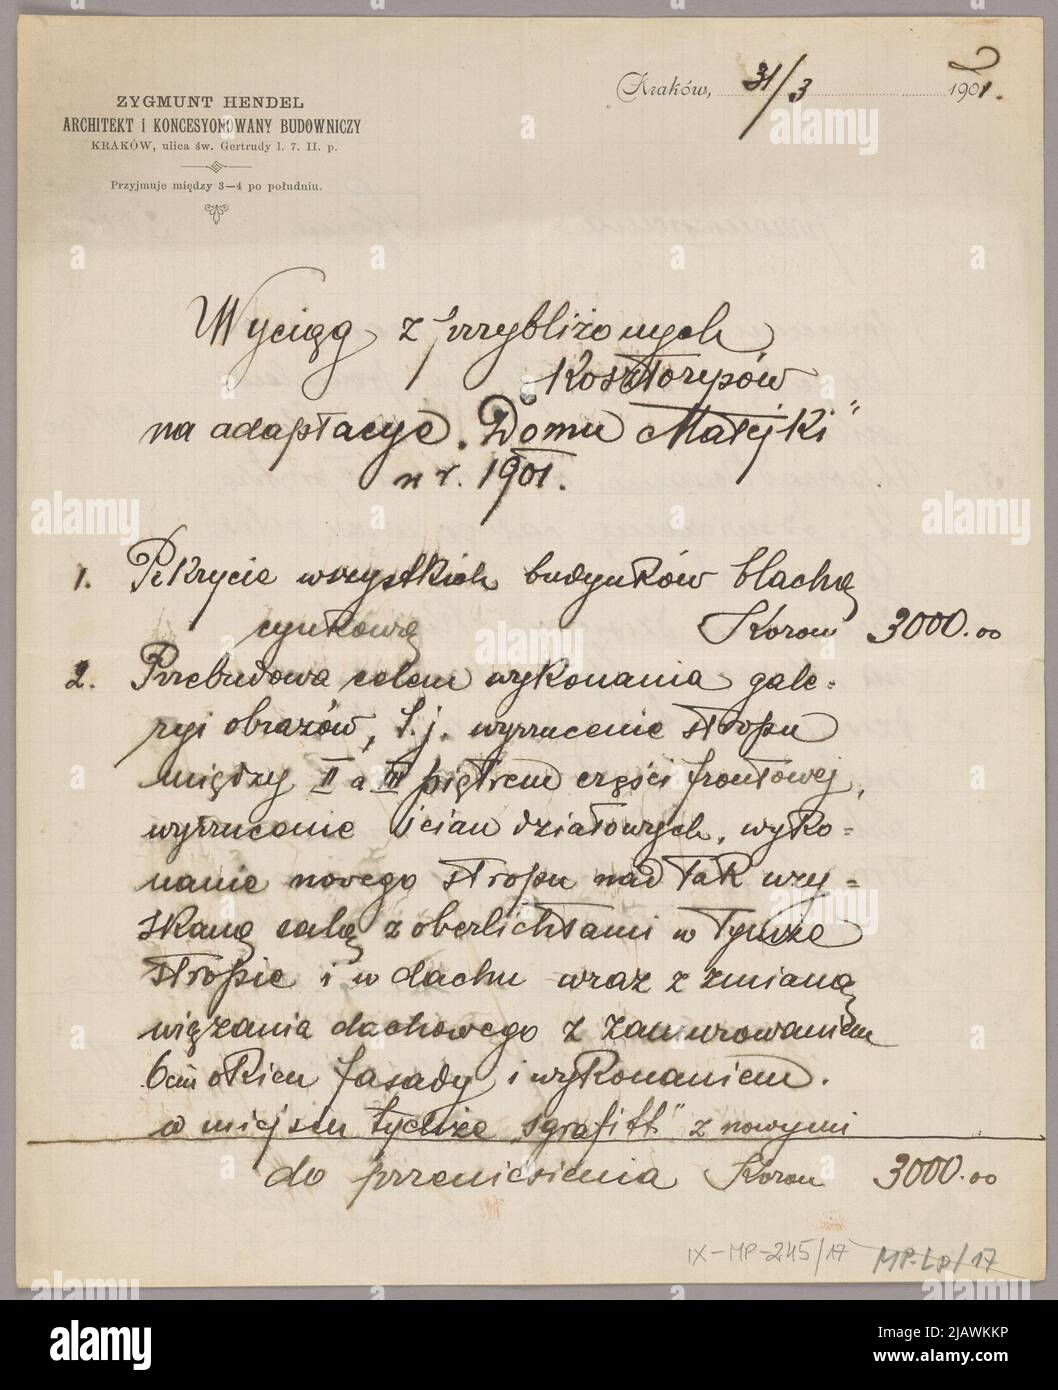 ZYGMUNT HENDEL
ARCHITEKT i KONCESYONOWANY BUDOWNICZY
KRAKÓW, ulica św. Gertrudy l. 7. II. p.
Przyjmuje między 3—4 po południu.
Kraków, 31/3 1901.
Wyciąg z przybliżonych
Kosztorysów
na adaptacye „Domu Matejki"
w r. 1901.
1. Pokrycie wszystkich budynków blachą
cynkową Koron 3000.00
2. Przebudowa celem wykonania gale-
ryi obrazów, t.j. wyrzucenie stropu
między II a III piętrem części frontowej,
wyrzucenie ścian działowych, wyko-
nanie nowego stropu nad tak uzy-
skaną salą z oberlichtami w tymże
stropie i w dachu wraz z zmianą
wiązania dachowego z zamurowaniem
6ciu okien fasady i wykonaniem
w miejscu tychże „sgrafitt" z nowymi
do przeniesienia Koron 3000.00
IX-MP-245/17 MP-Lp/17
alamy
Image ID: 2JAWKKP
www.alamy.com